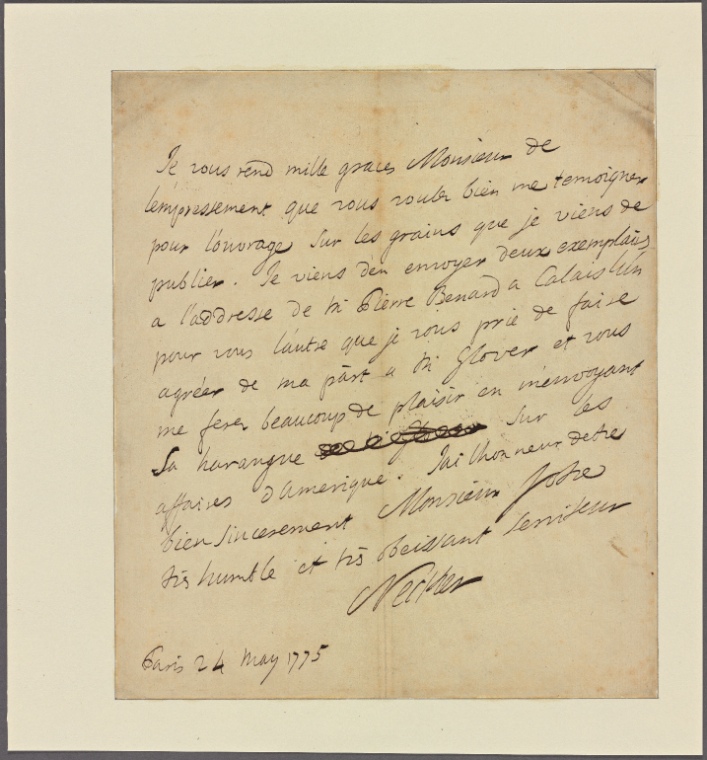 Je vous rend mille graces Monsieur de
l'empressement que vous voulez bien me temoigner
pour l'ouvrage sur les grains que je viens de
publier. Je viens d'en envoyer deux exemplaires
a l'addresse de M Pierre Benard a Calais l'un
pour vous l'autre que je vous prie de faire
agréer de ma part a M Glover et vous
me ferez beaucoup de plaisir en m'envoyant
Sa harangue sur les
affaires d'amerique. J'ai l'honneur detre
bien sincerement Monsieur Votre
tres humble et tres obeissant serviteur
Necker
Paris 24 May 1775